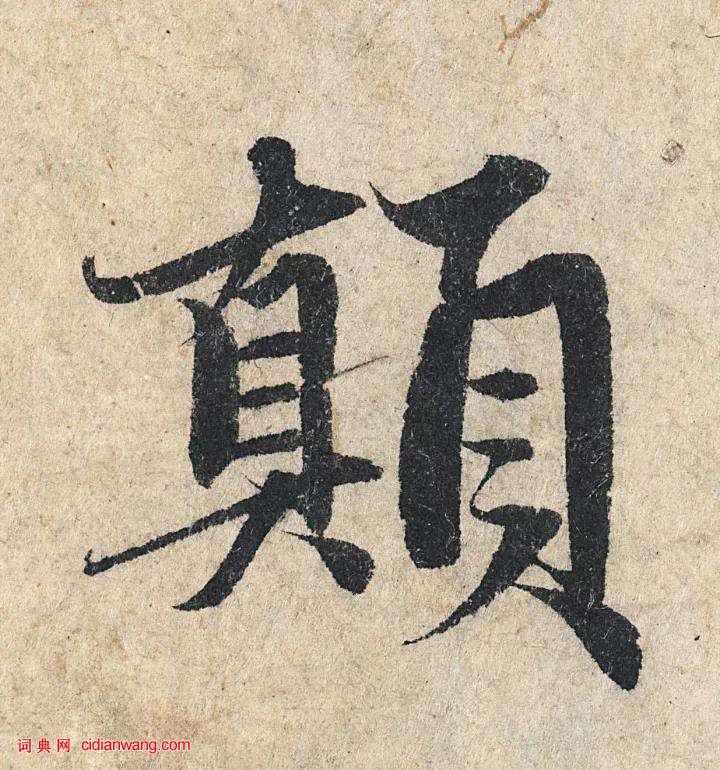 顛
词典网 cidianwang.com